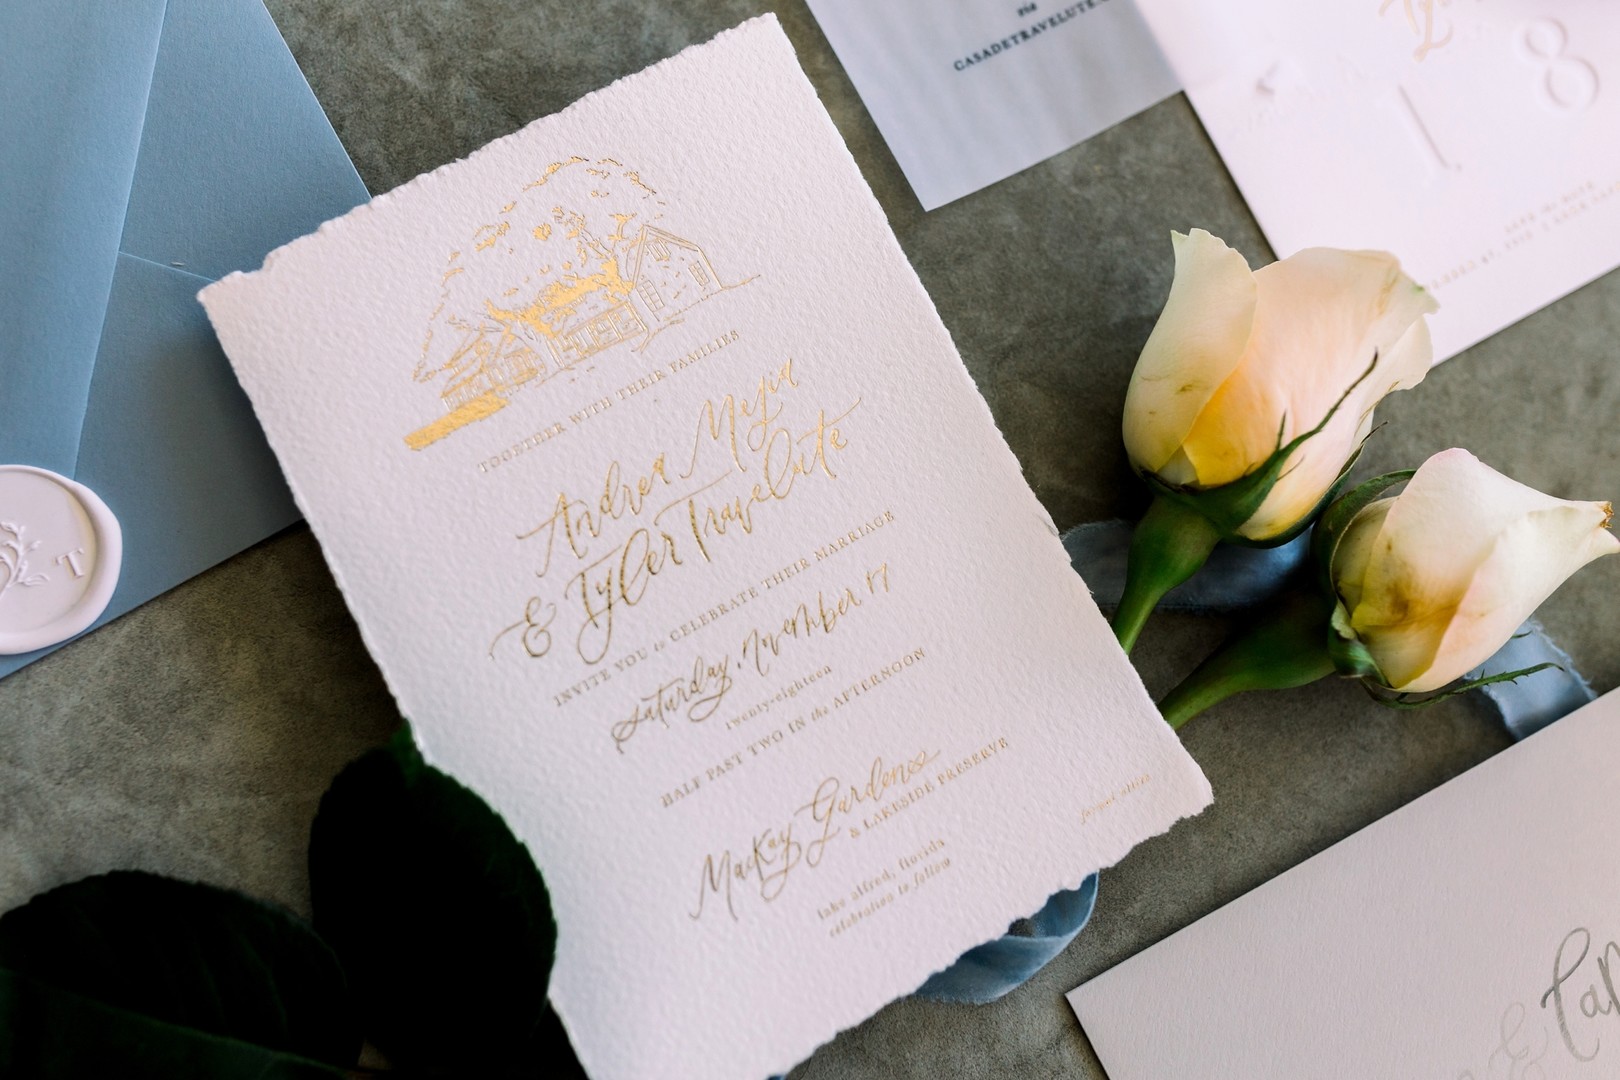 TOGETHER WITH THEIR FAMILIES
Andrea Mejia
& Tyler Travelute
INVITE YOU to CELEBRATE THEIR MARRIAGE
Saturday, November 17
twenty-eighteen
HALF PAST TWO IN the AFTERNOON
MacKay Gardens
& LAKESIDE PRESERVE
lake alfred, florida
celebration to follow
formal attire
via
CASADETRAVELUTE.
1 8
T
&